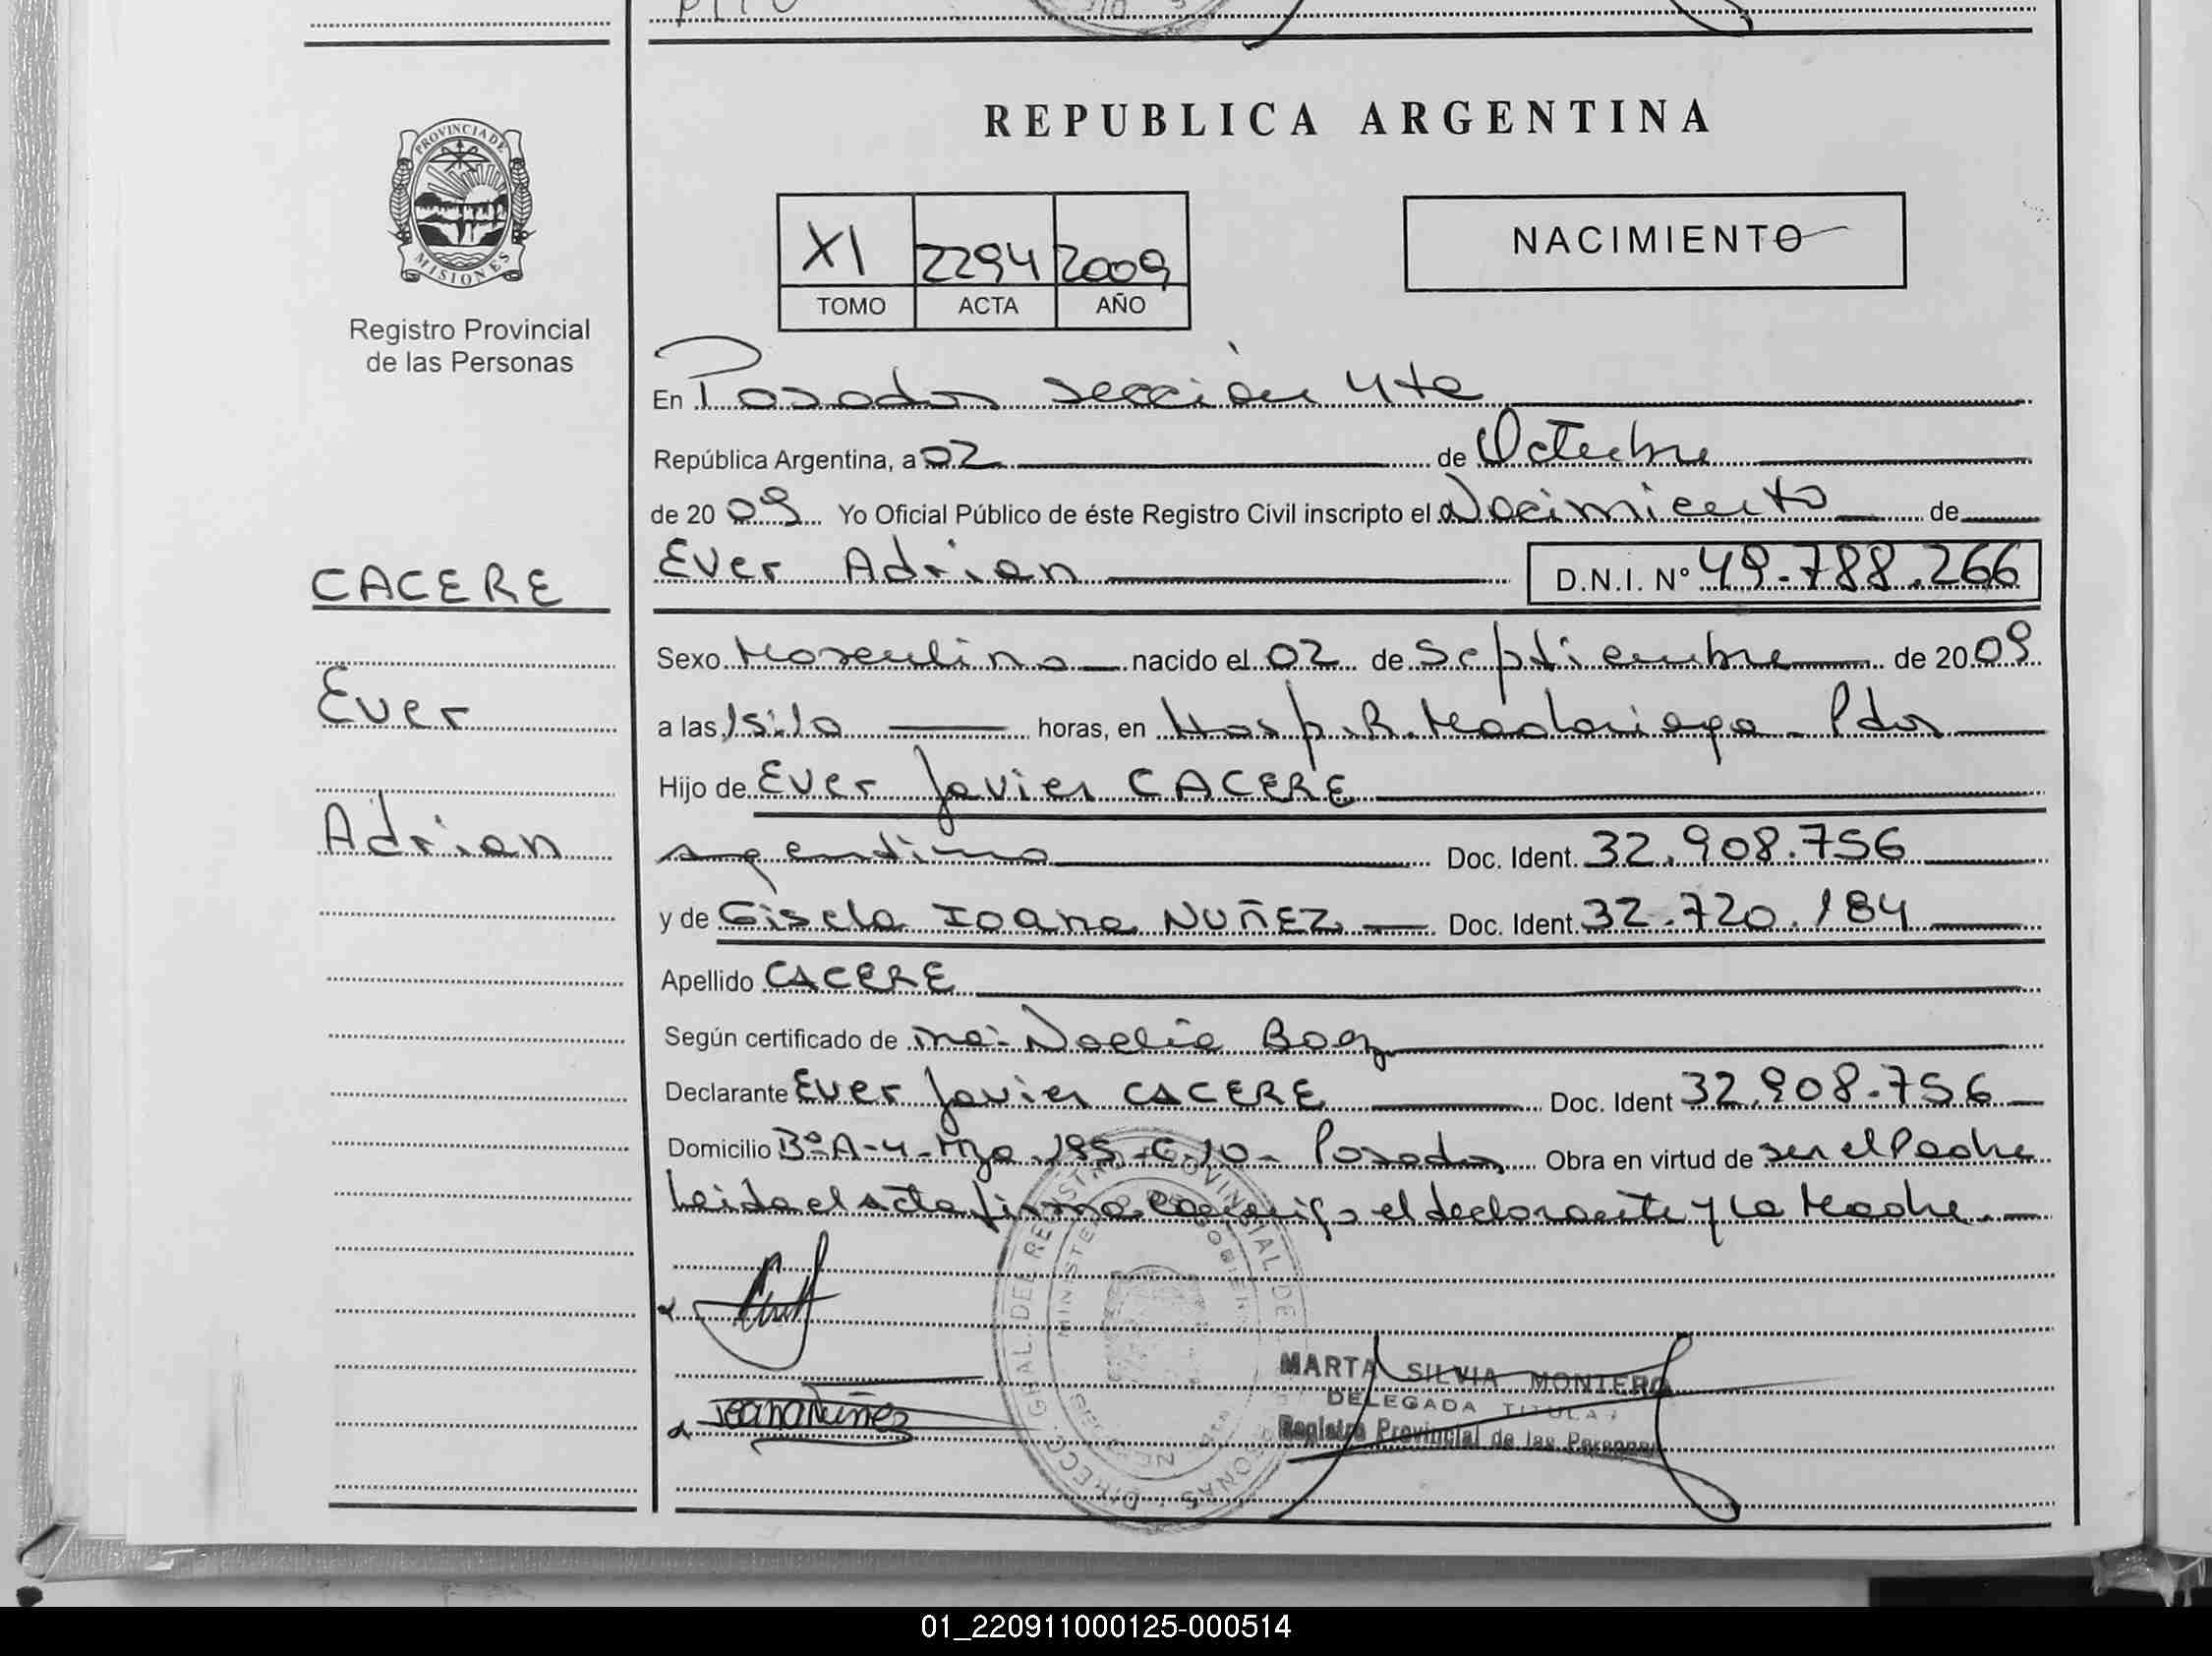 REPUBLICA ARGENTINA
PROVINCIA DE
MISIONES
Registro Provincial
de las Personas
XI 2294 2009
TOMO ACTA AÑO
NACIMIENTO
En Posadas sección 4ta
República Argentina, a 02 de Octubre
de 20 09 Yo Oficial Público de éste Registro Civil inscripto el Nacimiento de
Ever Adrian D.N.I. Nº 49.788.266
CACERE
Ever
Adrian
Sexo Masculino nacido el 02 de Septiembre de 20 09
a las 15:10 horas, en Hosp. R. Madariaga - Pdas
Hijo de Ever Javier CACERE
argentino Doc. Ident. 32.908.756
y de Gisela Ioana NUÑEZ Doc. Ident. 32.720.184
Apellido CACERE
Según certificado de Noelia Baez
Declarante Ever Javier CACERE Doc. Ident 32.908.756
Domicilio Bº A-4-Mza 195-C.10- Posadas Obra en virtud de ser el Padre
Leida el acta firma conmigo el declarante y La Madre.
Ioana Nuñez
MARTA SILVIA MONTERO
DELEGADA TITULAR
Registro Provincial de las Personas
01_220911000125-000514